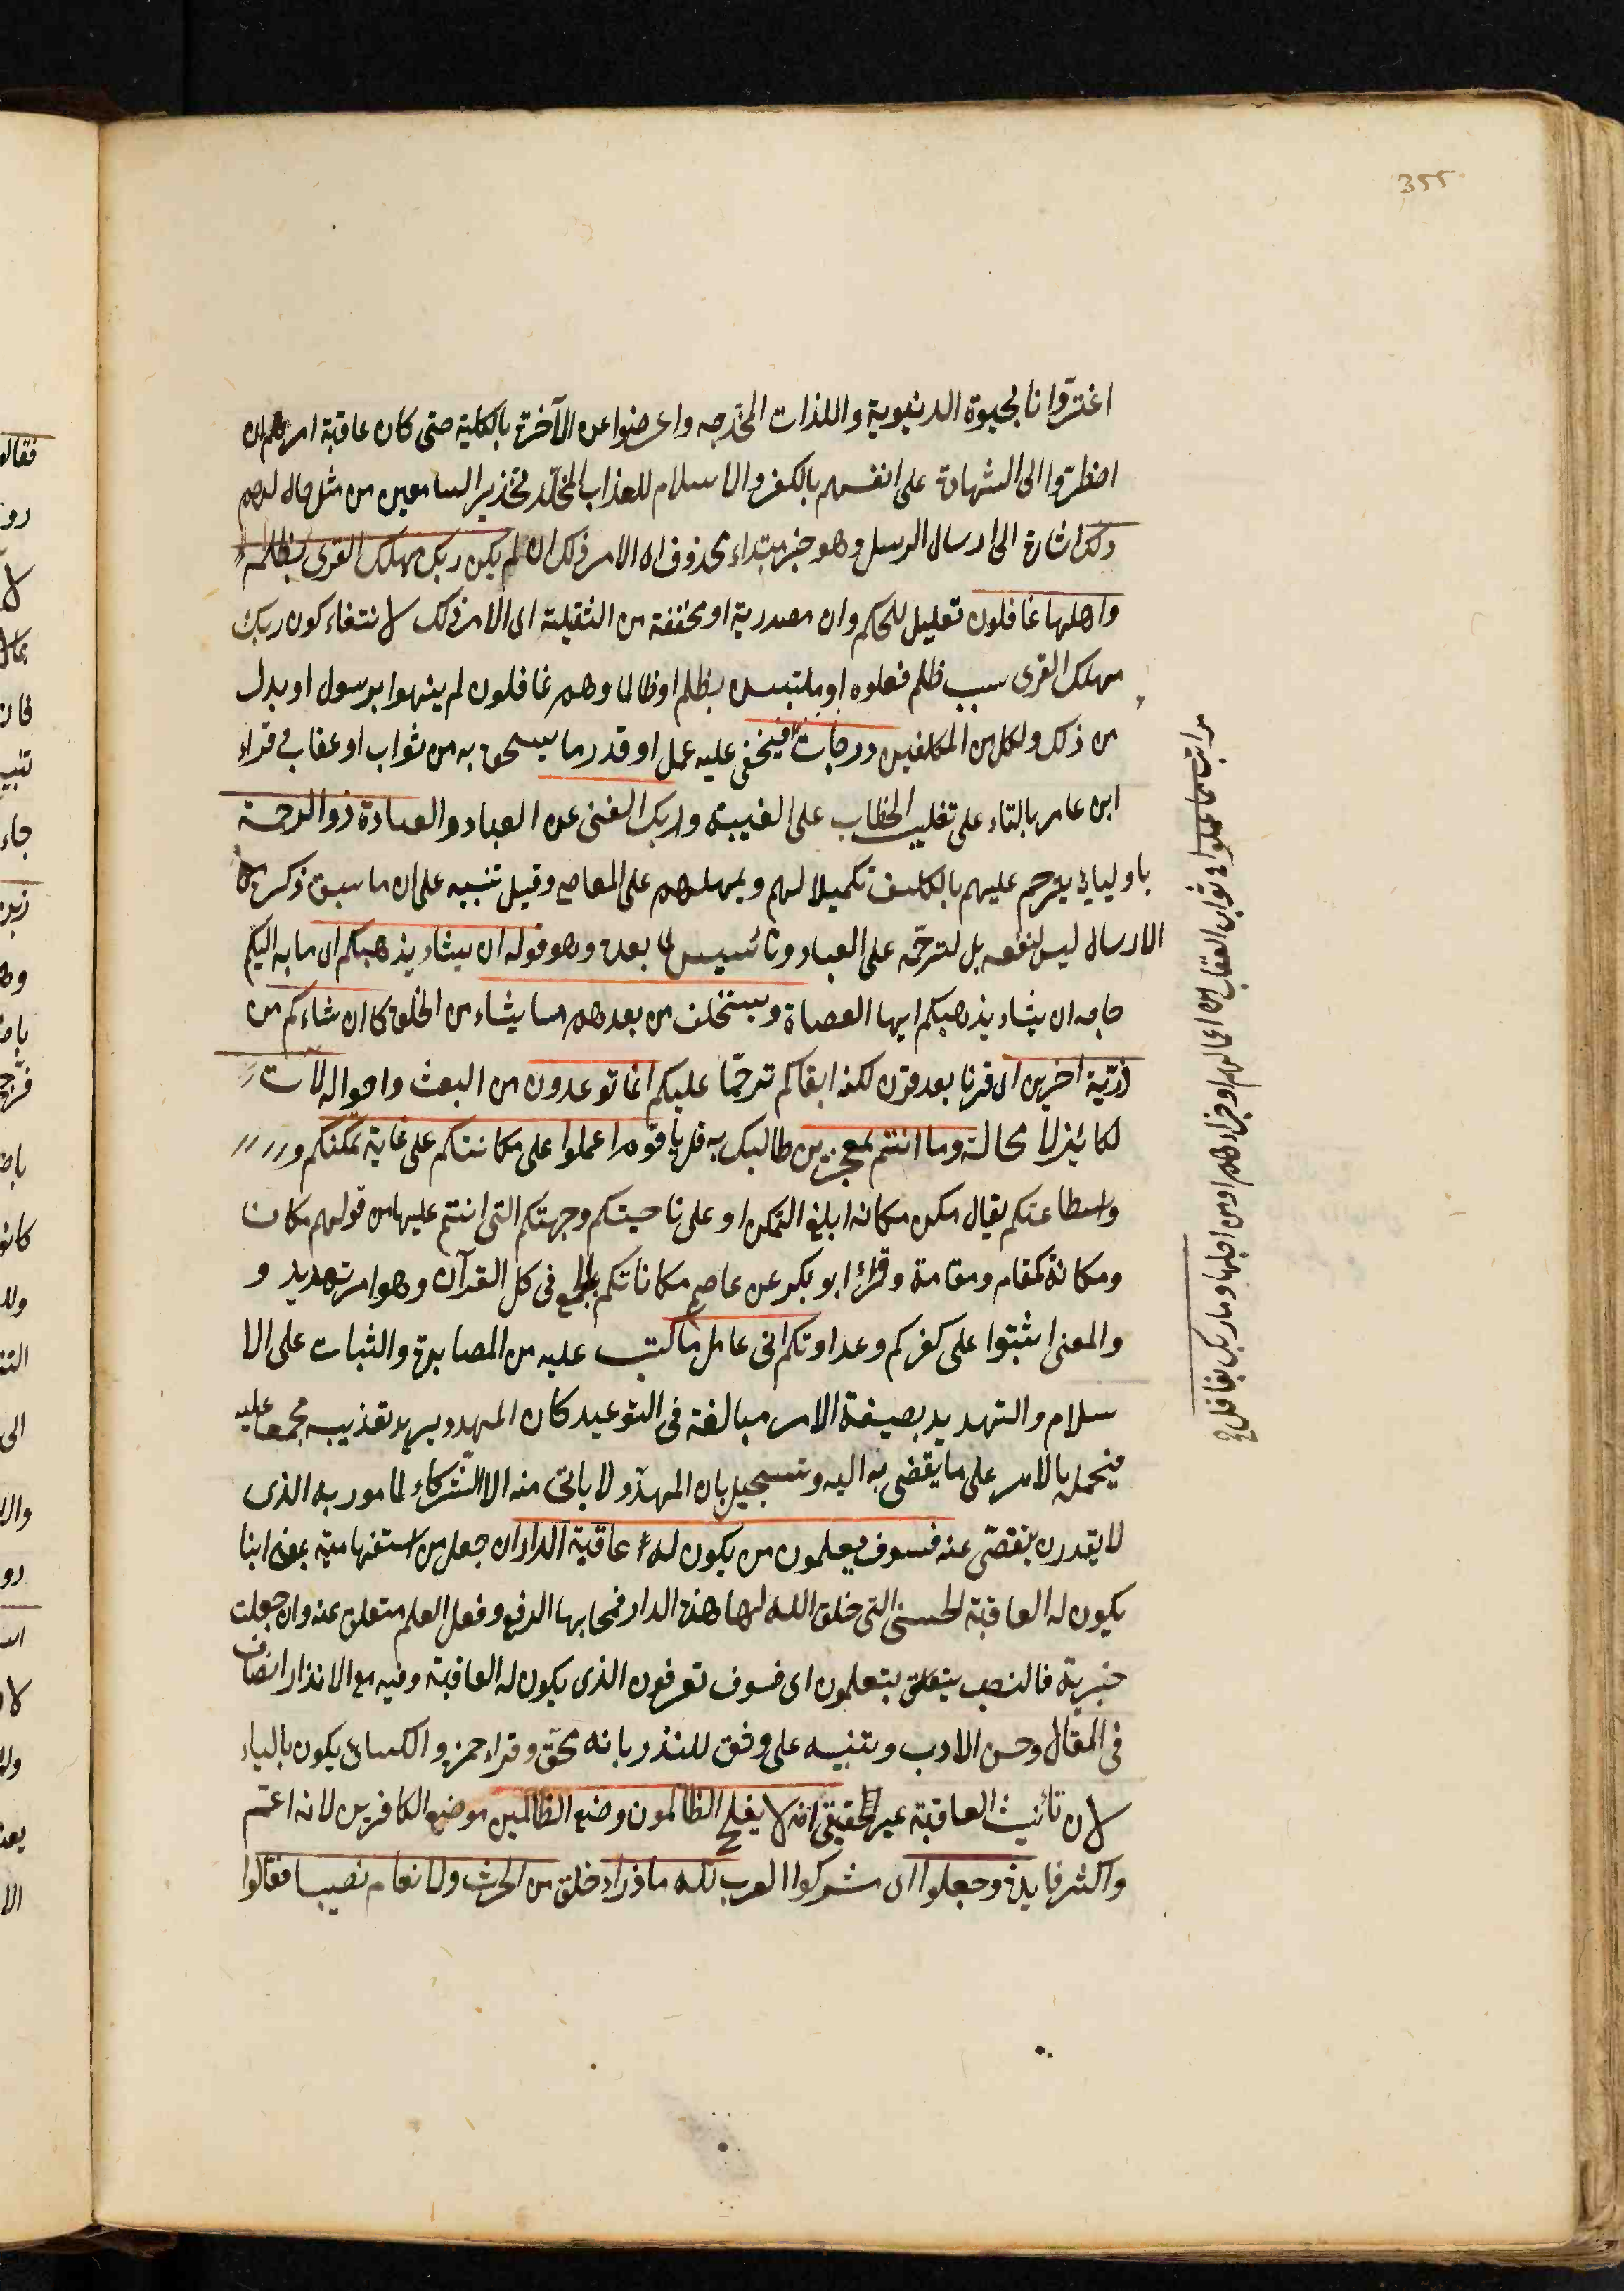 355
اغترّوا نا بحيوة الدنيوية واللذات المخدجه واعرضوا عن الآخرة بالكلية حتى كان عاقبة امرهم ان
اضطرّوا الى الشهادة على انفسهم بالكفر والاسلام للعذاب المخلّد تحذيرا للسامعين من مثل حالهم
ذلك اشارة الى ارسال الرسل وهو خبر مبتداء محذوف اى الامر ذلك ان لم يكن ربك مهلك القرى بظلم
واهلها غافلون تعليل للحكم وان مصدرية او مخففة من الثقيلة اى الامر ذلك لانتفاء كون ربك
مهلك القرى سبب ظلم فعلوه او ملتبسين بظلم او ظالما وهم غافلون لم ينهوا برسول او بدل
من ذلك ولكل من المكلفين درجات فيخفى عليه عمل او قدر ما يستحق به من ثواب او عقاب وقراء
ابن عامر بالتاء على تغليب الخطاب على الغيبة وربك الغنى عن العباد والعبادة ذو الرحمة
باوليائ يترحم عليهم بالكلف تكميلا لهم ويمهلهم على المعاصى وقيل تنبيه على ان ما سبق ذكره من
الارسال ليس لنفعه بل لترحّمه على العباد وتأسيس لما بعده وهو قوله ان يشاء يذهبكم اى ما به اليكم
حاجه ان يشاء يذهبكم ايها العصاة ويستخلف من بعدهم ما يشاء من الخلق كا ان شاءكم من
ذرّية اخرين اى قرنا بعد قرن لكنه ابقاكم ترحّما عليكم انما توعدون من البعث واحواله لآت
لكائن لا محالة وما انتم بمعجزين طالبك به قل يا قوم اعملوا على مكانتكم على غاية تمكنكم و
واسطاعتكم يقال مكن مكانة ابلغ التمكن او على ناحيتكم وجهتكم التى انتم عليها من قولهم مكان
ومكانة كمقام ومقامة وقرأ ابو بكر عن عاصم مكاناتكم بالجمع فى كل القرآن وهو امر تهديد و
والمعنى اثبتوا على كفركم وعداوتكم انى عامل ما كتب عليه من المصابرة والثبات على الا
سلام والتهديد بصيغة الامر مبالغة فى التوعيد كان المهدد يريد تعذيبه مجمعا عليه
فيحمله بالامر على ما يفضى به اليه وتسجيل بان المهدّد لا ياتى منه الا الشركاء لمامور به الذى
لا يقدر ان يتفصّى عنه فسوف يعلمون من يكون له عاقبة الدار ان جعل من استفهامية بمعنى اينا
يكون له العاقبة الحسنى التى خلق الله لها هذه الدار فمحلها الرفع وفعل العلم متعلق عنه وان جعلت
خبرية فالنصب يتعلق بتعلمون اى فسوف تعرفون الذى يكون له العاقبة وفيه مع الانذار انصاف
فى المقال وحسن الادب وتنبيه على وثق للنذر بانه محق وقراء حمزه والكسائ يكون بالياء
لان تأنيث العاقبة غير الحقيقى انه لا يفلح الظالمون وضع الظالمين موضع الكافرين لانه اعم
واكثر فايدة وجعلوا اى مشركوا العرب لله ما ذراء خلق من الحرث والانعام نصيبا فقالوا
مراتب مما عملوا اى ثواب العقاب من اعمالهم او جزاءهم او من اجلها وما ربك بغافل